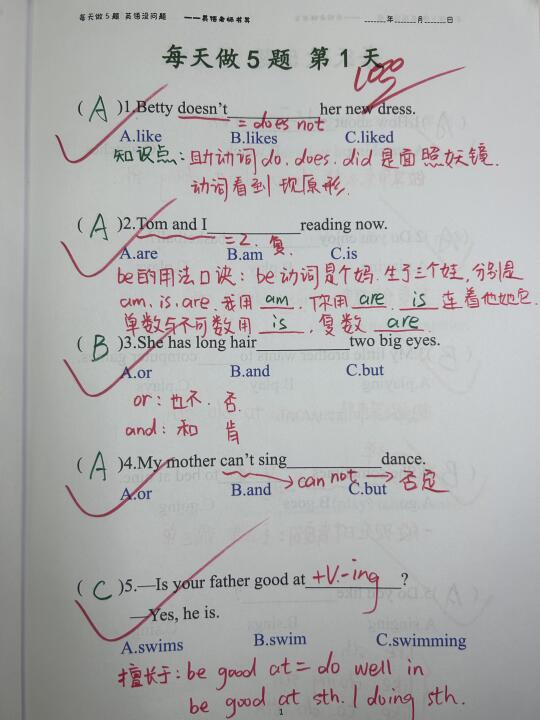 每天做5题 英语没问题 ——英语老师书写 ______年______月______日
每天做5题 第1天
100
( A )1.Betty doesn't__________her new dress.
= does not
A.like B.likes C.liked
知识点:助动词do.does.did是面照妖镜.
动词看到现原形.
( A )2.Tom and I__________reading now.
=2.复.
A.are B.am C.is
be的用法口诀:be动词是个妈.生了三个娃,分别是
am.is.are.我用 am ,你用 are . is 连着他她它.
单数与不可数用 is ,复数 are .
( B )3.She has long hair__________two big eyes.
A.or B.and C.but
or:也不.否.
and:和 肯
( A )4.My mother can't sing__________dance.
can not → 否定
A.or B.and C.but
( C )5.—Is your father good at +V.-ing ?
—Yes, he is.
A.swims B.swim C.swimming
擅长于:be good at = do well in
be good at sth. / doing sth.
1